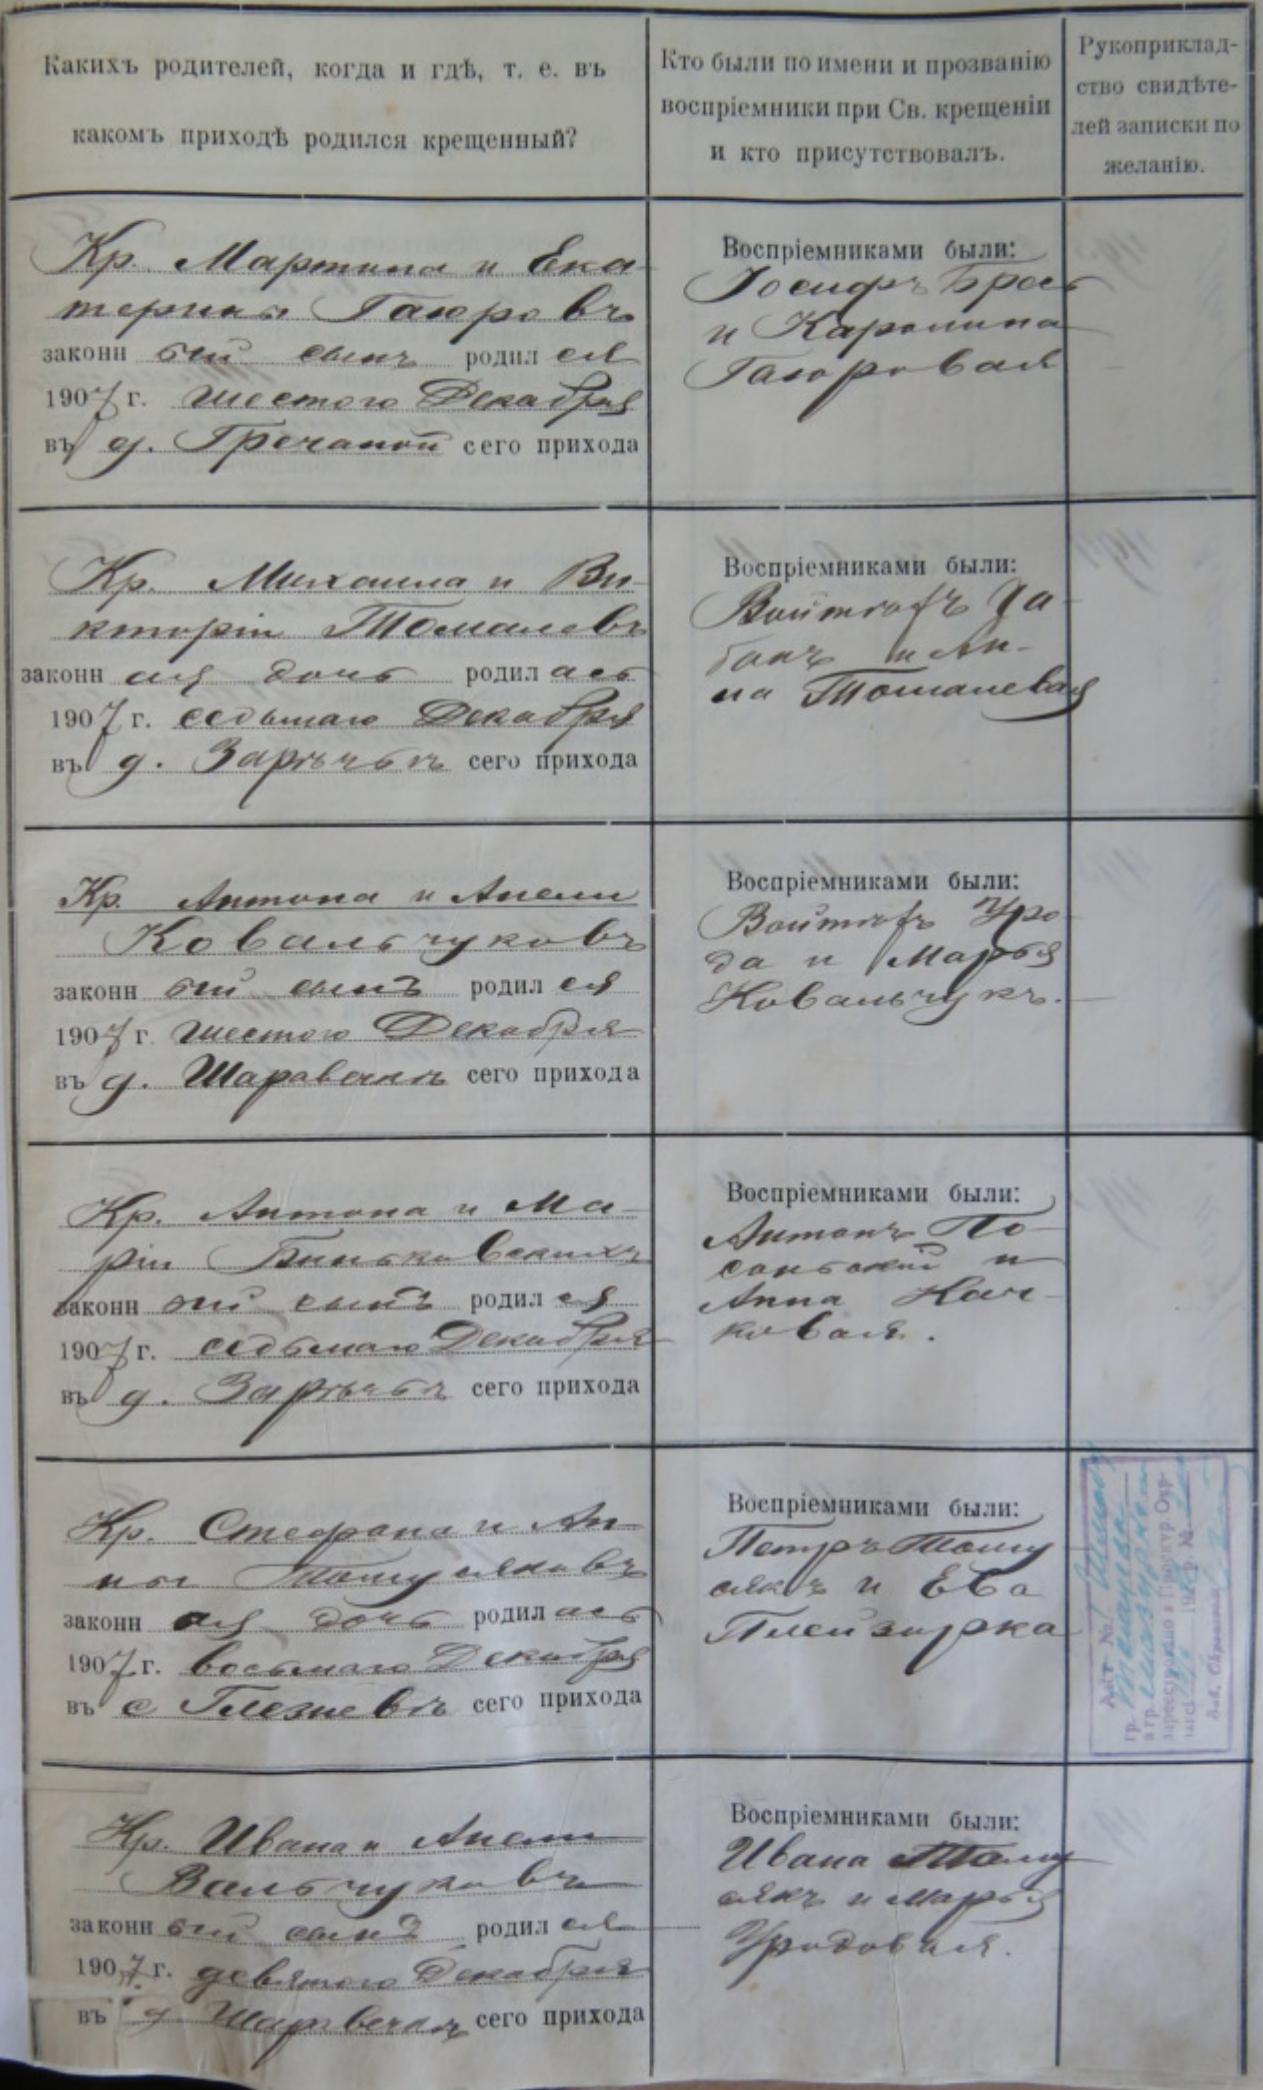 Какихъ родителей, когда и гдѣ, т. е. въ
какомъ приходѣ родился крещенный?
Кто были по имени и прозванію
воспріемники при Св. крещеніи
и кто присутствовалъ.
Рукоприклад-
ство свидѣте-
лей записки по
желанію.
Кр. Мартина и Ека-
терины Гаюровъ
законн ый сынъ родил ся
1907 г. шестого Декабря
въ д. Гречаной сего прихода
Воспріемниками были:
Іосифъ
и Каролина
Гаюровая
Кр. Михаила и Ви-
кторіи Томалевъ
законн ая дочь родил ась
1907 г. седьмаго Декабря
въ д. Зарѣчьѣ сего прихода
Воспріемниками были:
Войтѣхъ
и Ан-
на Томалевая
Кр. Антона и Анели
Ковальчуковъ
законн ый сынъ родил ся
1907 г. шестого Декабря
въ д. Шаравкахъ сего прихода
Воспріемниками были:
Войтѣхъ Уро-
да и Марья
Ковальчукъ.
Кр. Антона и Ма-
ріи Биньковскихъ
законн ый сынъ родил ся
1907 г. седьмаго Декабря
въ д. Зарѣчьѣ сего прихода
Воспріемниками были:
Антонъ
и
Анна
Кр. Стефана и Ан-
ны Томусяковъ
законн ая дочь родил ась
1907 г. восьмаго Декабря
въ с Глезневѣ сего прихода
Воспріемниками были:
Петръ Тому
сякъ и Ева
Плейзирка
Акт №
гр.
а гр.
Кр. Ивана и Анели
Вальчуковъ
законн ый сынъ родил ся
1907 г. девятого Декабря
въ д. сего прихода
Воспріемниками были:
Ивана Тому
сякъ и Марья
Уродовая.